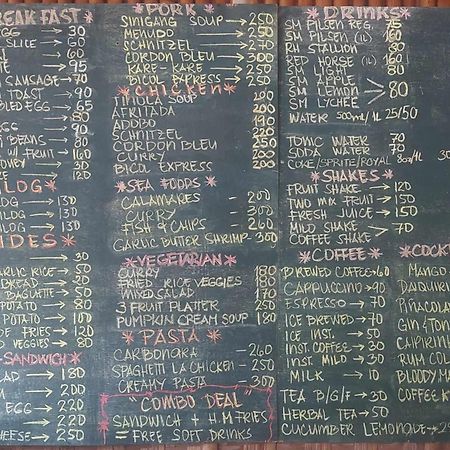 BREAKFAST
EGG 30
SLICE → 60
→ 45
→ 95
SAUSAGE → 70
TOAST → 90
BLED EGG → 65
→ 80
EGG → 90
BEANS → 80
W/ FRUIT → 160
→ 30
→ 120
SILOG
ILOG → 130
ILOG → 130
ILOG → 130
SIDES *
→ 30
GARLIC RICE → 50
BREAD → 20
BAGUETTE → 50
POTATO → 100
POTATO → 100
DE FRIES → 120
VEGGIES → 80
SANDWICH *
LAD → 180
→ 200
EGG → 220
→ 220
CHEESE → 250
* PORK *
SINIGANG SOUP → 250
MENUDO → 250
SCHNITZEL → 270
CORDON BLEU → 300
KARE-KARE → 250
BICOL EXPRESS → 250
* CHICKEN *
TINOLA SOUP 200
AFRITADA 200
ADOBO 200
SCHNITZEL 200
CORDON BLEU 250
CURRY 200
BICOL EXPRESS 200
* SEA FOODS *
CALAMARES - 200
CURRY - 300
FISH & CHIPS - 260
GARLIC BUTTER SHRIMP - 300
* VEGETARIAN *
CURRY 180
FRIED RICE VEGGIES 180
MIXED SALAD 170
3 FRUIT PLATTER 250
PUMPKIN CREAM SOUP 180
* PASTA *
CARBONARA - 260
SPAGHETTI LA CHICKEN - 250
CREAMY PASTA - 300
"COMBO DEAL"
SANDWICH + H.M FRIES
= FREE SOFT DRINKS
* DRINKS *
SM PILSEN REG. 75
SM PILSEN (1L) 160
RH STALLION 80
RED HORSE (1L) 160
SM LIGHT 80
SM APPLE
SM LEMON > 80
SM LYCHEE
WATER 500ml/1L 25/50
TONIC WATER 70
SODA WATER 70
COKE/SPRITE/ROYAL 8oz/1L 30
* SHAKES *
FRUIT SHAKE → 120
TWO MIX FRUIT → 150
FRESH JUICE → 150
MILD SHAKE > 70
COFFEE SHAKE
* COFFEE *
BREWED COFFEE → 60
CAPPUCCINO → 90
ESPRESSO → 70
ICE BREWED → 70
ICE INST. → 50
INST. COFFEE → 30
INST. MILD → 30
MILK → 10
TEA B/G/F → 30
HERBAL TEA → 50
CUCUMBER LEMONADE → 25
* COCK
MANGO
DAIQUIRI
PIÑACOLA
GIN & TON
CAIPIRINH
RUM CO
BLOODY MA
COFFEE